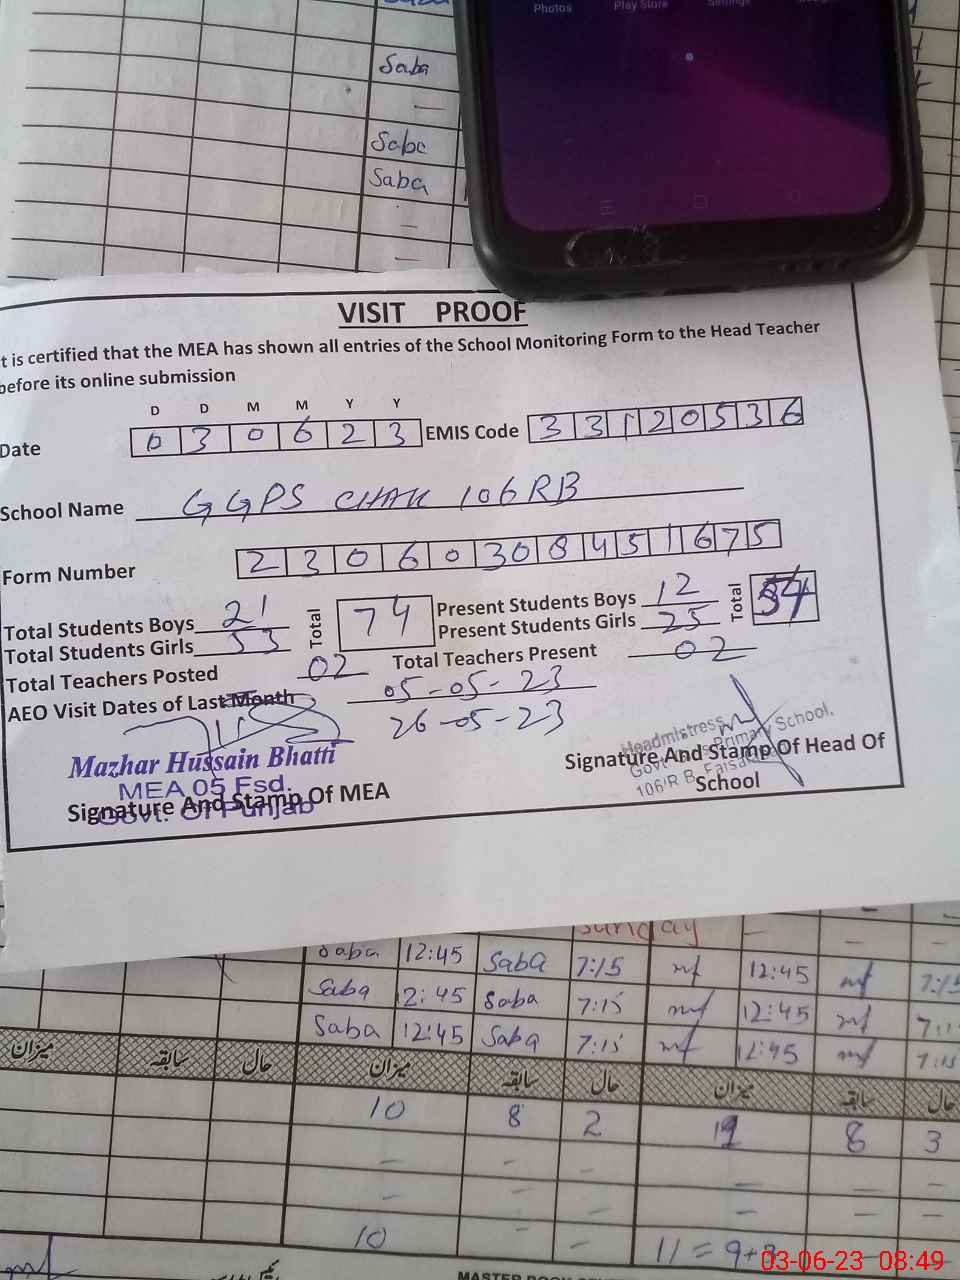 Photos Play Store Settings
Saba
Saba
Saba
VISIT PROOF
t is certified that the MEA has shown all entries of the School Monitoring Form to the Head Teacher
before its online submission
D D M M Y Y
Date 0 3 0 6 2 3 EMIS Code 3 3 1 2 0 5 3 6
School Name GGPS CHAK 106 RB
Form Number 2 3 0 6 0 30 8 4 5 1 6 7 5
Total Students Boys 21 Total 74 Present Students Boys 12 Total
Total Students Girls 53 Present Students Girls 25
Total Teachers Posted 02 Total Teachers Present 02
AEO Visit Dates of Last Month 05-05-23
26-05-23
Mazhar Hussain Bhatti
MEA 05 Fsd.
Govt. Of Punjab
Signature And Stamp Of MEA
Headmistress
Primary School.
106 R B
Signature And Stamp Of Head Of
School
Sunday
Saba 12:45 Saba 7:15 12:45 7:15
Saba 2:45 Saba 7:15 12:45
Saba 12:45 Saba 7:15 12:45 7:15
میزان سابقہ حال میزان سابقہ حال میزان سابقہ حال
10 8 2 8 3
10 11 = 9+
03-06-23 08:49